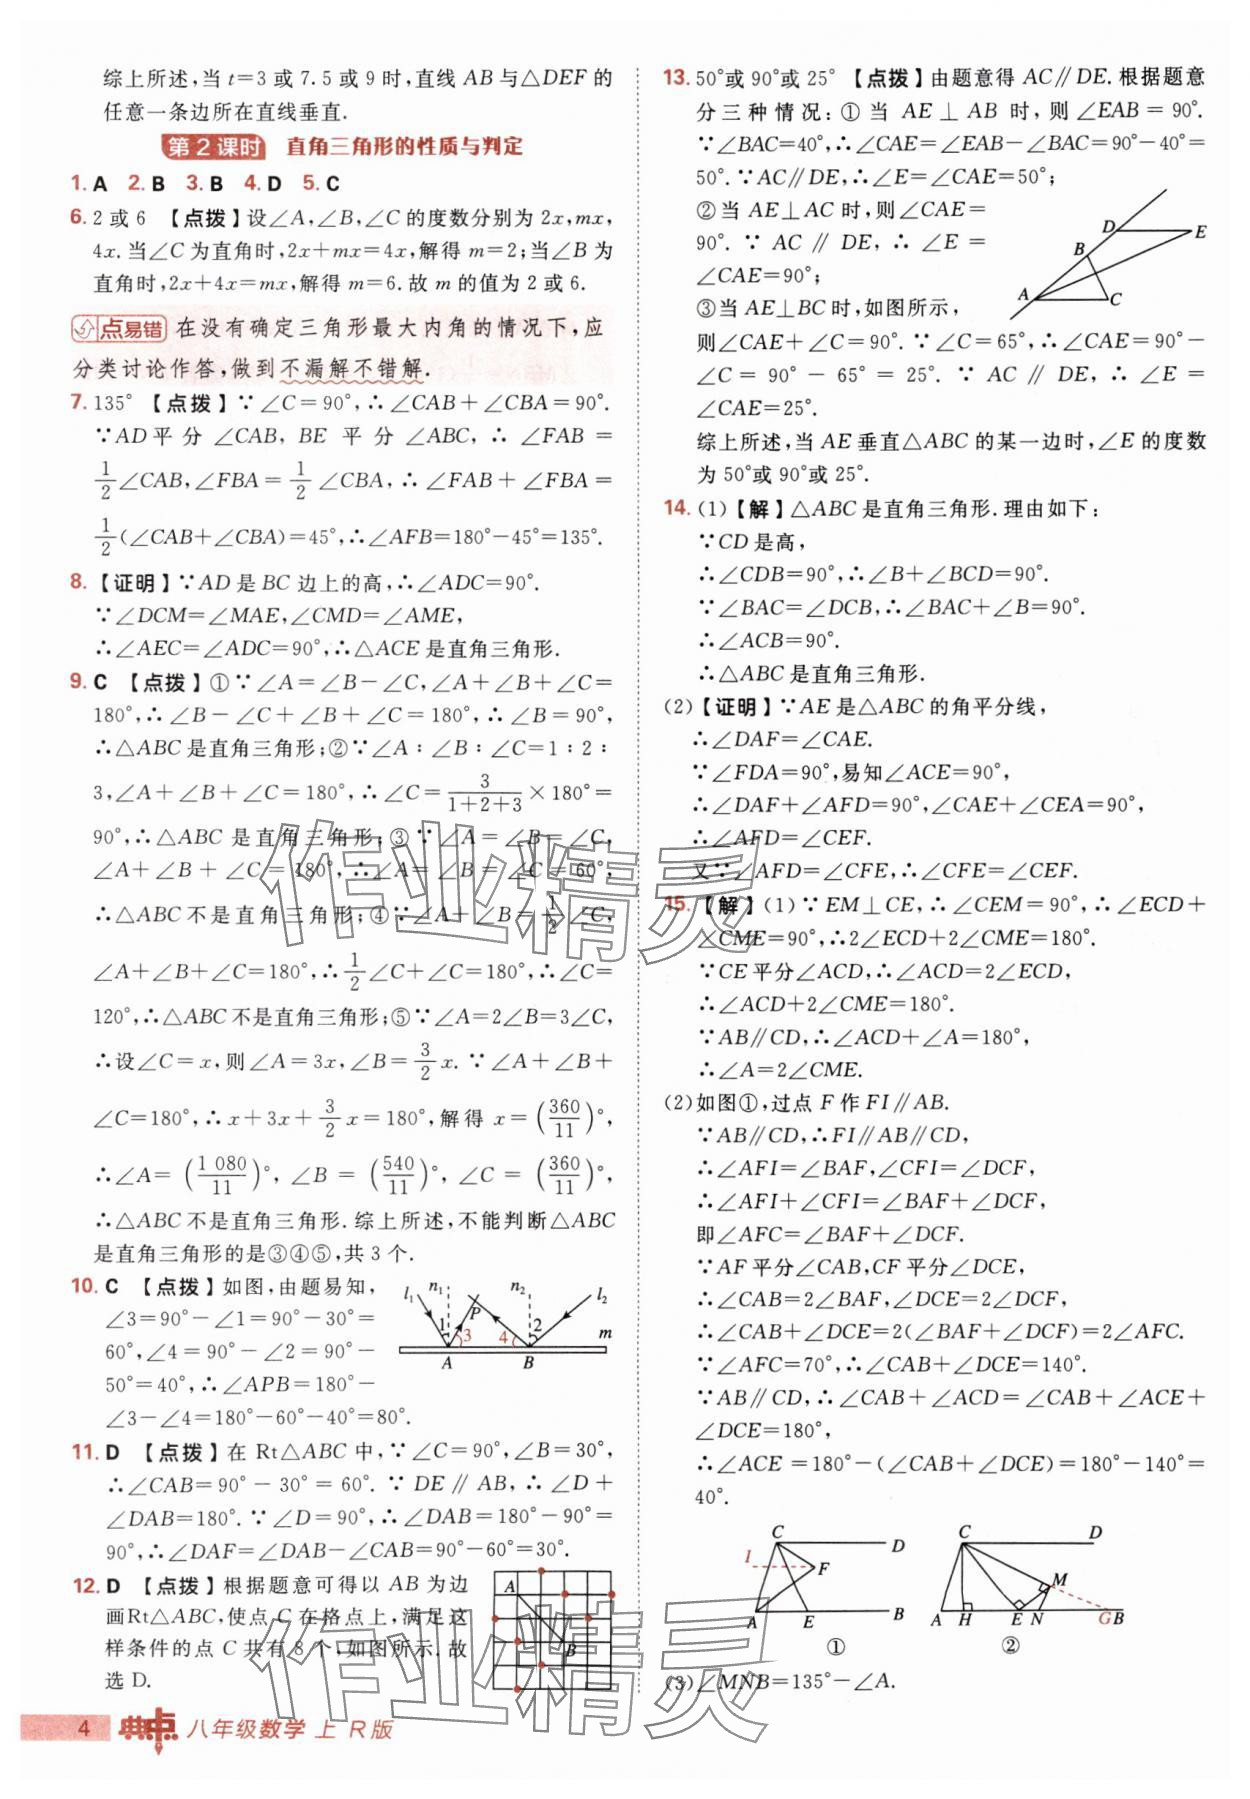 综上所述,当 t=3 或 7.5 或 9 时,直线 AB 与△DEF 的
任意一条边所在直线垂直.
第 2 课时 直角三角形的性质与判定
1. A 2. B 3. B 4. D 5. C
6. 2 或 6 【点拨】设∠A,∠B,∠C 的度数分别为 2x,mx,
4x.当∠C 为直角时,2x+mx=4x,解得 m=2;当∠B 为
直角时,2x+4x=mx,解得 m=6.故 m 的值为 2 或 6.
点易错 在没有确定三角形最大内角的情况下,应
分类讨论作答,做到不漏解不错解.
7. 135° 【点拨】∵∠C=90°,∴∠CAB+∠CBA=90°.
∵AD平分∠CAB, BE 平分∠ABC,∴∠FAB=
1/2∠CAB,∠FBA=1/2∠CBA,∴∠FAB+∠FBA=
1/2(∠CAB+∠CBA)=45°,∴∠AFB=180°-45°=135°.
8.【证明】∵AD 是 BC 边上的高,∴∠ADC=90°.
∵∠DCM=∠MAE,∠CMD=∠AME,
∴∠AEC=∠ADC=90°,∴△ACE 是直角三角形.
9. C 【点拨】①∵∠A=∠B-∠C,∠A+∠B+∠C=
180°,∴∠B-∠C+∠B+∠C=180°,∴∠B=90°,
∴△ABC 是直角三角形;②∵∠A∶∠B∶∠C=1∶2∶
3,∠A+∠B+∠C=180°,∴∠C=3/(1+2+3)×180°=
90°,∴△ABC 是直角三角形;③∵∠A=∠B=∠C,
∠A+∠B+∠C=180°,∴∠A=∠B=∠C=60°,
∴△ABC 不是直角三角形;④∵∠A+∠B=1/2∠C,
∠A+∠B+∠C=180°,∴1/2∠C+∠C=180°,∴∠C=
120°,∴△ABC 不是直角三角形;⑤∵∠A=2∠B=3∠C,
∴设∠C=x,则∠A=3x,∠B=3/2x.∵∠A+∠B+
∠C=180°,∴x+3x+3/2x=180°,解得 x=(360/11)°,
∴∠A=(1 080/11)°,∠B=(540/11)°,∠C=(360/11)°,
∴△ABC 不是直角三角形.综上所述,不能判断△ABC
是直角三角形的是③④⑤,共 3 个.
10. C 【点拨】如图,由题易知,
∠3=90°-∠1=90°-30°=
60°,∠4=90°-∠2=90°-
50°=40°,∴∠APB=180°-
∠3-∠4=180°-60°-40°=80°.
l₁ n₁ n₂ l₂
P 1 3 4 2 m
A B
11. D 【点拨】在 Rt△ABC 中,∵∠C=90°,∠B=30°,
∴∠CAB=90°-30°=60°.∵DE∥AB,∴∠D+
∠DAB=180°.∵∠D=90°,∴∠DAB=180°-90°=
90°,∴∠DAF=∠DAB-∠CAB=90°-60°=30°.
12. D 【点拨】根据题意可得以 AB 为边
画Rt△ABC,使点 C 在格点上,满足这
样条件的点 C 共有 8 个,如图所示.故
选 D.
A
B
13. 50°或 90°或 25° 【点拨】由题意得 AC∥DE.根据题意
分三种情况:①当 AE⊥AB 时,则∠EAB=90°.
∵∠BAC=40°,∴∠CAE=∠EAB-∠BAC=90°-40°=
50°.∵AC∥DE,∴∠E=∠CAE=50°;
②当 AE⊥AC 时,则∠CAE=
90°.∵AC∥DE,∴∠E=
∠CAE=90°;
③当 AE⊥BC 时,如图所示,
D E
B
A C
则∠CAE+∠C=90°.∵∠C=65°,∴∠CAE=90°-
∠C=90°-65°=25°.∵AC∥DE,∴∠E=
∠CAE=25°.
综上所述,当 AE 垂直△ABC 的某一边时,∠E 的度数
为 50°或 90°或 25°.
14. (1)【解】△ABC 是直角三角形.理由如下:
∵CD 是高,
∴∠CDB=90°,∴∠B+∠BCD=90°.
∵∠BAC=∠DCB,∴∠BAC+∠B=90°.
∴∠ACB=90°.
∴△ABC 是直角三角形.
(2)【证明】∵AE 是△ABC 的角平分线,
∴∠DAF=∠CAE.
∵∠FDA=90°,易知∠ACE=90°,
∴∠DAF+∠AFD=90°,∠CAE+∠CEA=90°,
∴∠AFD=∠CEF.
又∵∠AFD=∠CFE,∴∠CFE=∠CEF.
15.【解】(1)∵EM⊥CE,∴∠CEM=90°,∴∠ECD+
∠CME=90°,∴2∠ECD+2∠CME=180°.
∵CE 平分∠ACD,∴∠ACD=2∠ECD,
∴∠ACD+2∠CME=180°.
∵AB∥CD,∴∠ACD+∠A=180°,
∴∠A=2∠CME.
(2)如图①,过点 F 作 FI∥AB.
∵AB∥CD,∴FI∥AB∥CD,
∴∠AFI=∠BAF,∠CFI=∠DCF,
∴∠AFI+∠CFI=∠BAF+∠DCF,
即∠AFC=∠BAF+∠DCF.
∵AF 平分∠CAB,CF 平分∠DCE,
∴∠CAB=2∠BAF,∠DCE=2∠DCF,
∴∠CAB+∠DCE=2(∠BAF+∠DCF)=2∠AFC.
∵∠AFC=70°,∴∠CAB+∠DCE=140°.
∵AB∥CD,∴∠CAB+∠ACD=∠CAB+∠ACE+
∠DCE=180°,
∴∠ACE=180°-(∠CAB+∠DCE)=180°-140°=
40°.
C D
I F
A E B
①
C D
M
A H E N G B
②
(3)∠MNB=135°-∠A.
作业精灵
作业精灵
4 典中点 八年级数学 上 R版